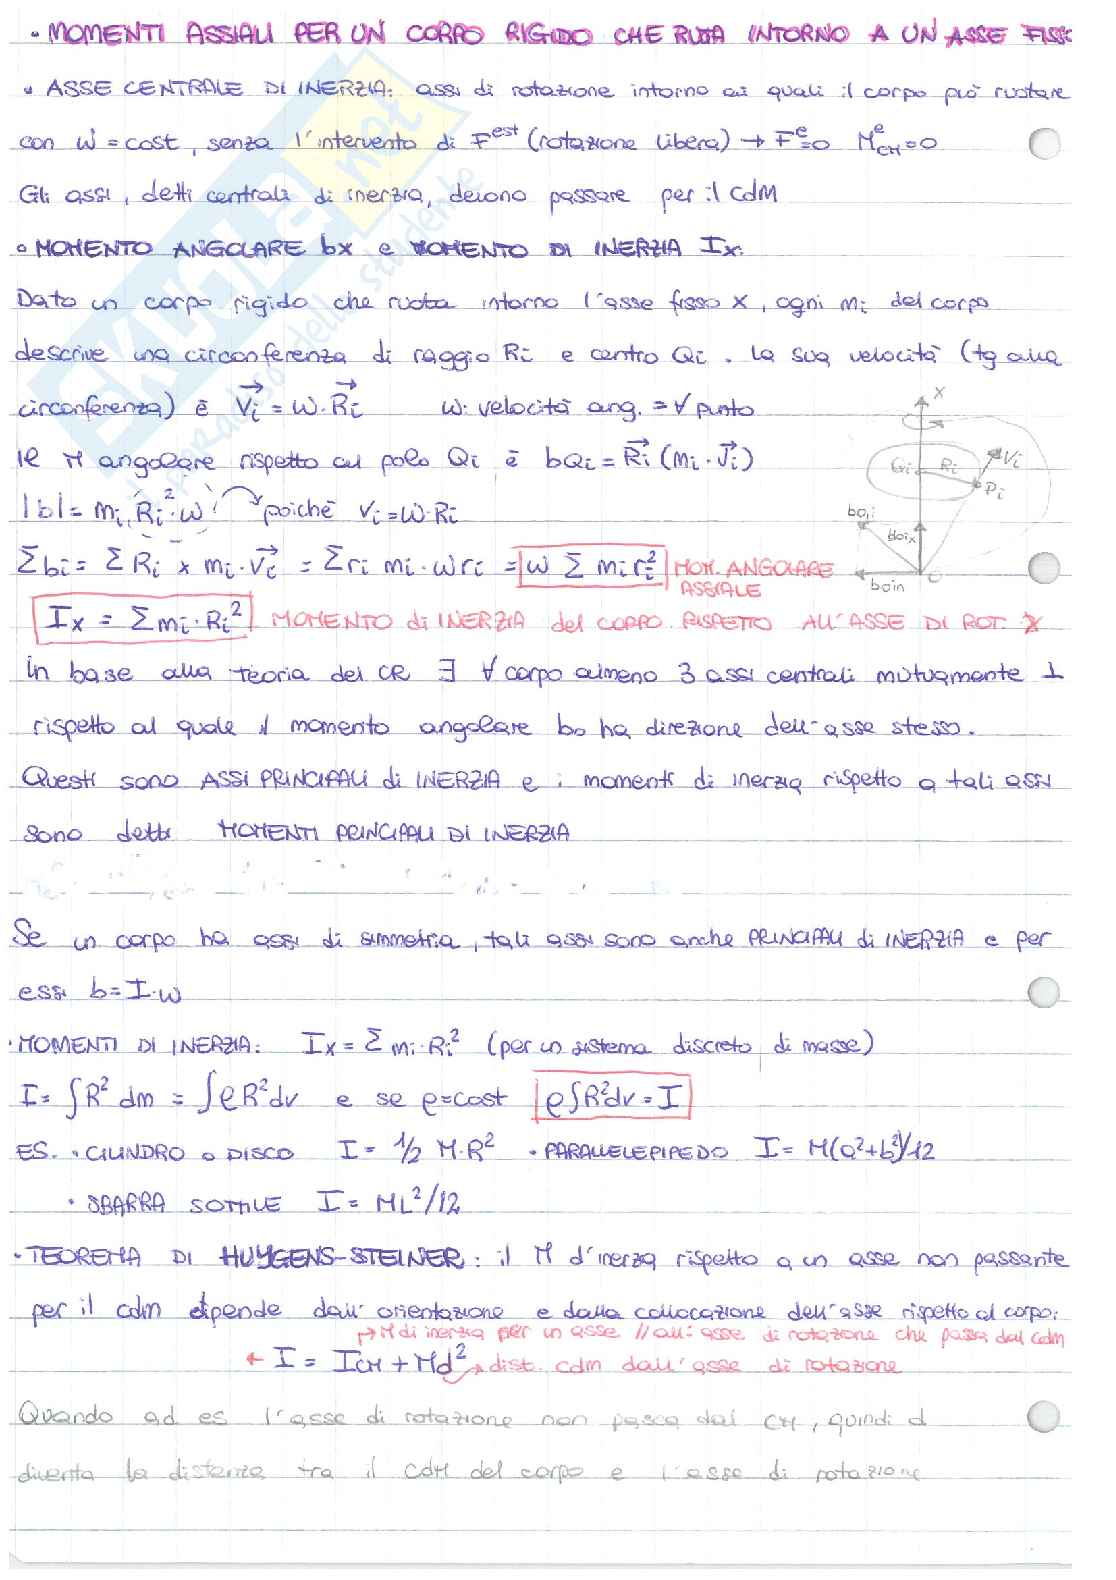 • MOMENTI ASSIALI PER UN CORPO RIGIDO CHE RUOTA INTORNO A UN ASSE FISSO
• ASSE CENTRALE DI INERZIA: assi di rotazione intorno ai quali il corpo può ruotare
con ω = cost, senza l'intervento di F^est (rotazione libera) → F^e=0 M^e_CM=0
Gli assi, detti centrali di inerzia, devono passare per il CdM
• MOMENTO ANGOLARE bx e MOMENTO DI INERZIA Ix:
Dato un corpo rigido che ruota intorno l'asse fisso x, ogni mi del corpo
descrive una circonferenza di raggio Ri e centro Qi. La sua velocità (tg alla
circonferenza) è Vi = ω·Ri ω: velocità ang. = ∀ punto
Il M angolare rispetto al polo Qi è bQi = Ri (mi·Vi)
|b| = mi Ri²·ω poiché vi = ω·Ri
Σbi = Σ Ri × mi·Vi = Σri mi·ωri = ω Σ miri² MOM. ANGOLARE
ASSIALE
x
Qi Ri Vi
Pi
boi
boix
boin O
Ix = Σmi·Ri² MOMENTO di INERZIA del CORPO RISPETTO ALL'ASSE DI ROT. X
In base alla teoria dei CR ∃ ∀ corpo almeno 3 assi centrali mutuamente ⊥
rispetto al quale il momento angolare bo ha direzione dell'asse stesso.
Questi sono ASSI PRINCIPALI di INERZIA e i momenti di inerzia rispetto a tali assi
sono detti MOMENTI PRINCIPALI DI INERZIA
Se un corpo ha assi di simmetria, tali assi sono anche PRINCIPALI di INERZIA e per
essi b=I·ω
• MOMENTI DI INERZIA: Ix = Σ mi·Ri² (per un sistema discreto di masse)
I = ∫R² dm = ∫ρR²dv e se ρ=cost ρ∫R²dv = I
ES. • CILINDRO o DISCO I = 1/2 M·R² • PARALLELEPIPEDO I = M(a²+b²)/12
• SBARRA SOTTILE I = ML²/12
• TEOREMA DI HUYGENS-STEINER: il M d'inerzia rispetto a un asse non passante
per il cdm dipende dall'orientazione e dalla collocazione dell'asse rispetto al corpo:
→ M di inerzia per un asse // all'asse di rotazione che passa dal cdm
← I = ICM + Md² → dist. cdm dall'asse di rotazione
Quando ad es l'asse di rotazione non passa dal CM, quindi d
diventa la distanza tra il CdM del corpo e l'asse di rotazione
SKUOLA.not
il paradiso dello studente